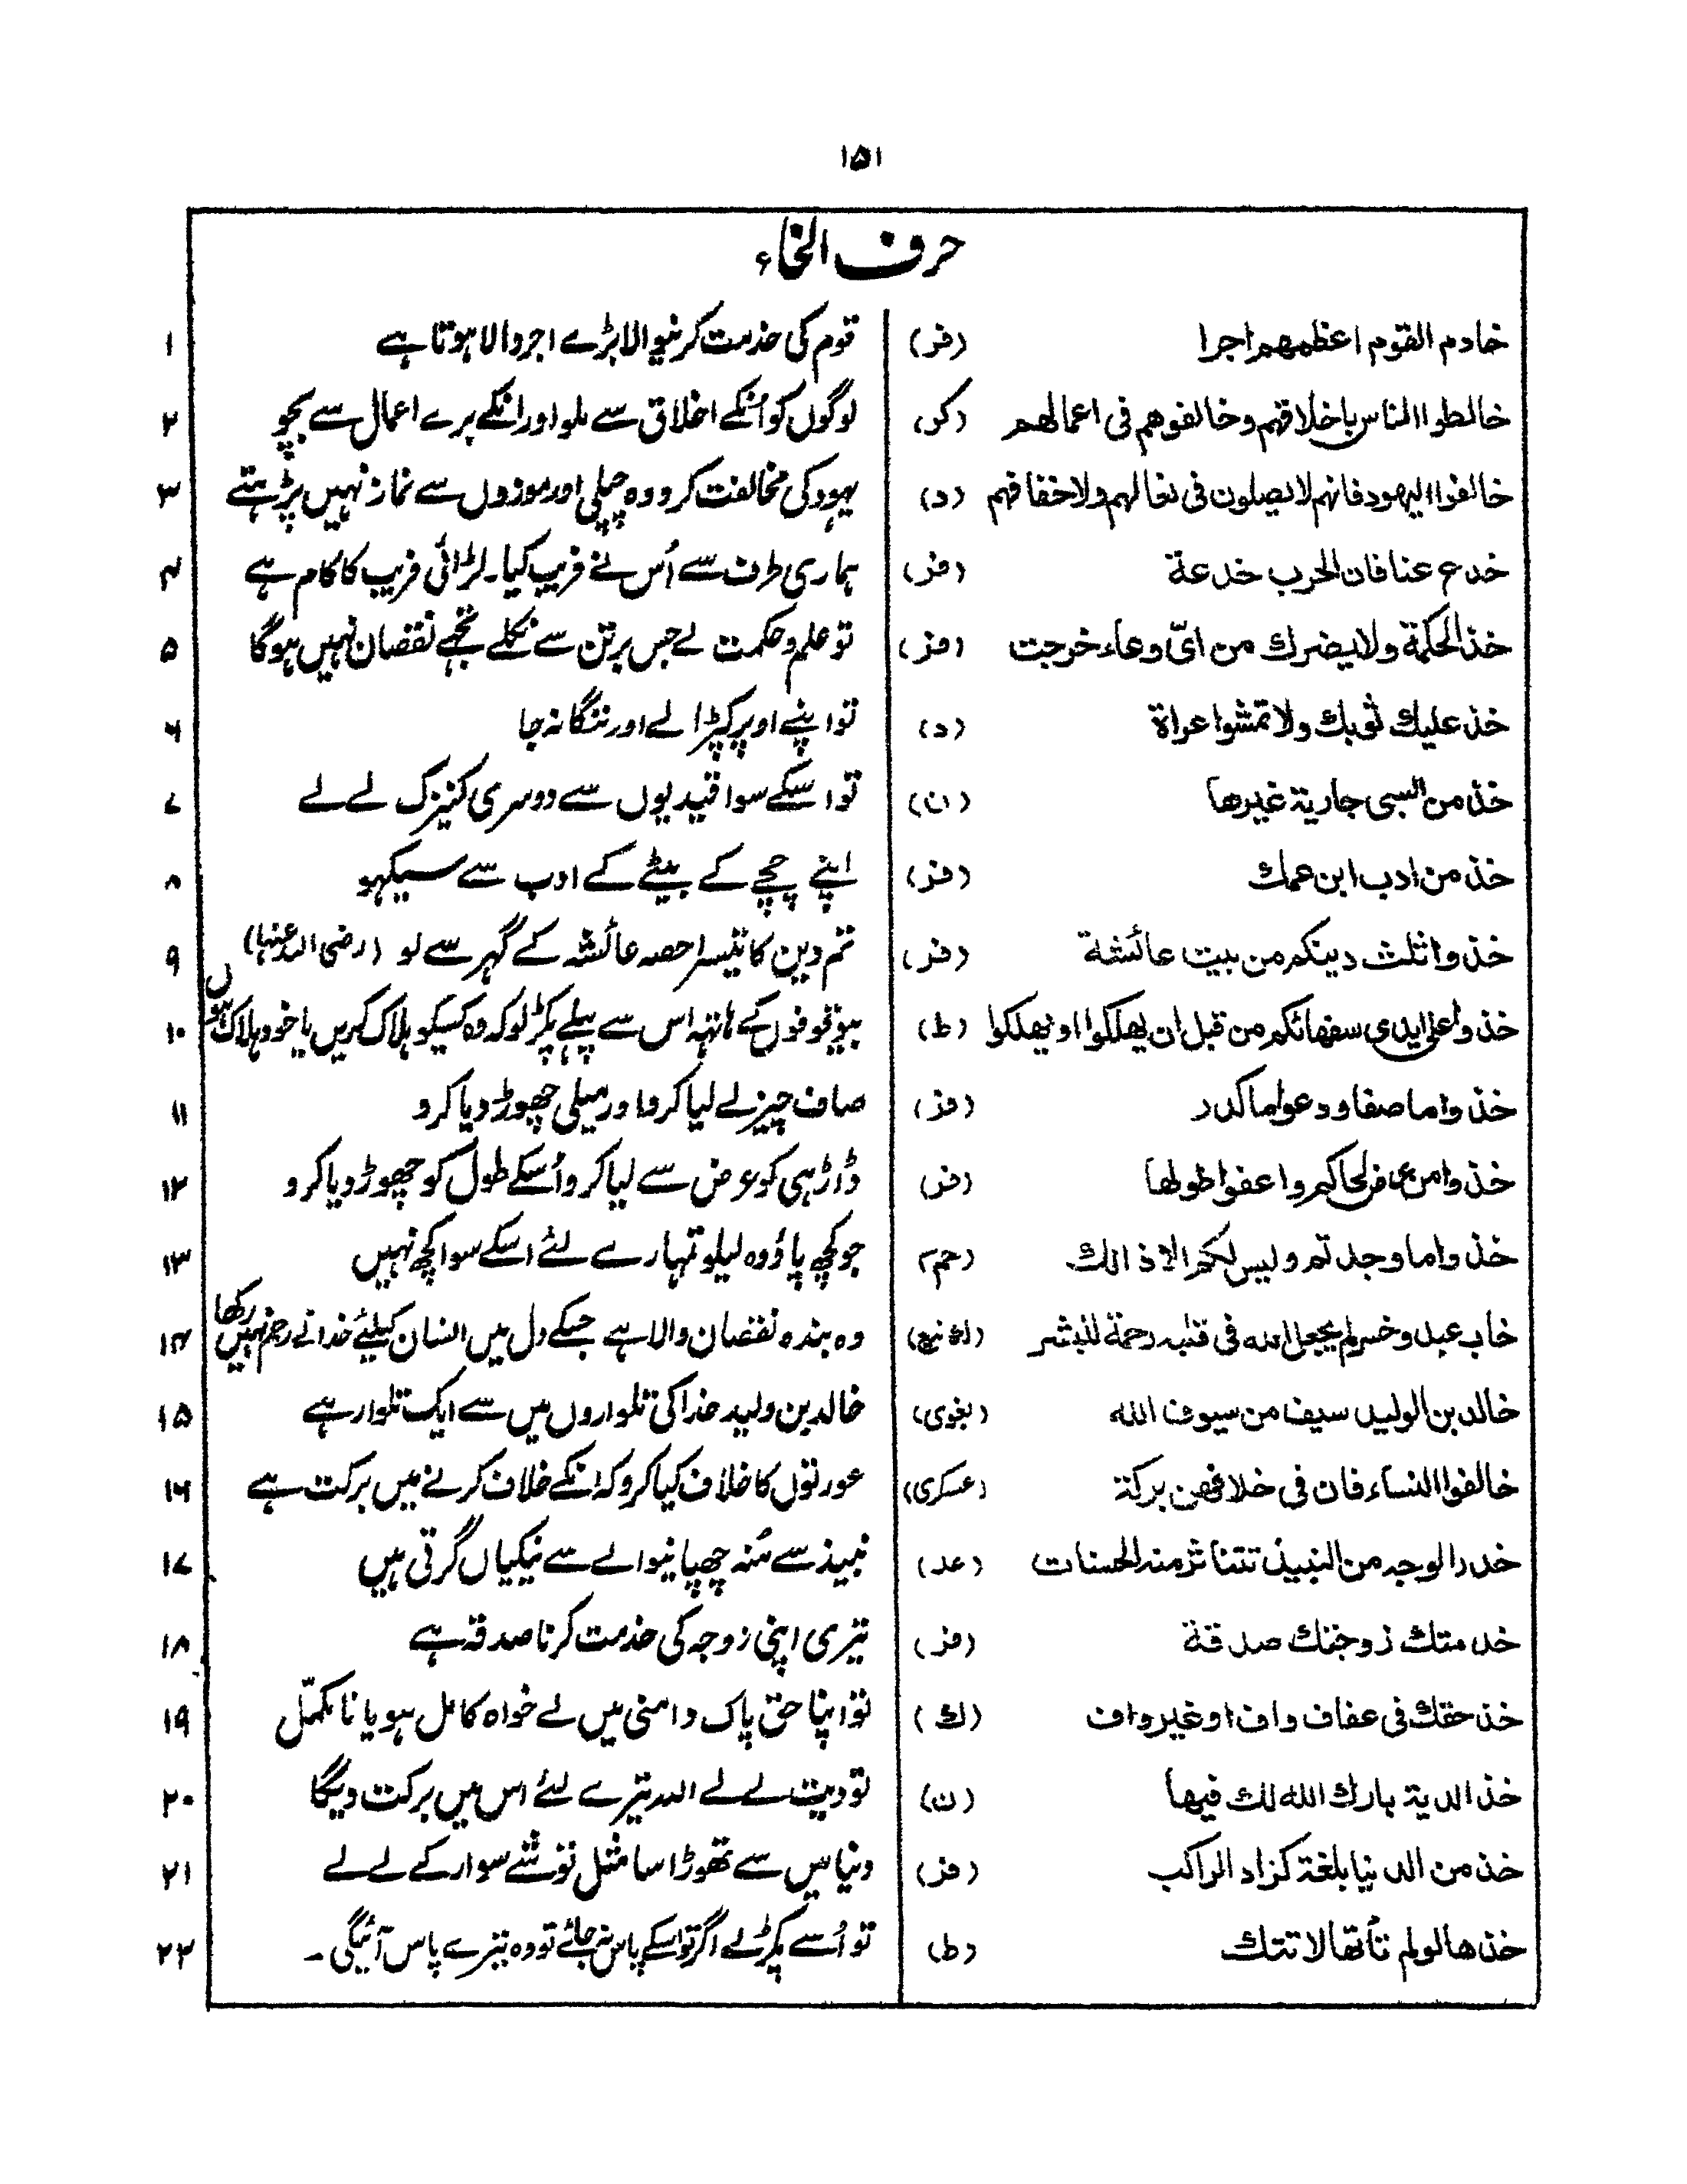 ۱۵۱
حرف الخاء
خادم القوم اعظمهم اجرا (فر) قوم کی خدمت کرنیوالا بڑے اجر والا ہوتا ہے ۱
خالطوا الناس باخلاقهم وخالفوهم فی اعمالهم (کر) لوگوں کو اُنکے اخلاق سے ملو اور انکے برے اعمال سے بچو ۲
خالفوا الیهود فانهم لا یصلون فی نعالهم ولا خفافهم (د) یہود کی مخالفت کرو وہ چپلی اور موزوں سے نماز نہیں پڑہتے ۳
خدع عنا فان الحرب خدعة (فر) ہماری طرف سے اُس نے فریب کیا۔ لڑائی فریب کا کام ہے ۴
خذ الحکمة ولا یضرك من ایّ وعاء خرجت (فر) تو علم و حکمت لے جس برتن سے نکلے تجہے نقصان نہیں ہوگا ۵
خذ علیك ثوبك ولا تمشوا عراة (د) تو اپنے اوپر کپڑا لے اور ننگا نہ جا ۶
خذ من السبی جاریة غیرها (ن) تو اسکے سوا قیدیوں سے دوسری کنیزک لے لے ۷
خذ من ادب ابن عمك (فر) اپنے چچے کے بیٹے کے ادب سے سیکہو ۸
خذوا ثلث دینکم من بیت عائشة (فر) تم دین کا تیسرا حصہ عائشہ کے گہر سے لو (رضی اللہ عنہا) ۹
خذوا علی ایدی سفهائکم من قبل ان یهلکوا او یهلکوا (ط) بیوقوفوں کے ہاتہہ اس سے پہلے پکڑ لو کہ وہ کسیکو ہلاک کریں یا خود ہلاک ہوں ۱۰
خذوا ما صفا ودعوا ما کدر (فر) صاف چیز لے لیا کرو اور میلی چھوڑ دیا کرو ۱۱
خذوا من عرض لحاکم واعفوا طولها (فر) ڈاڑہی کو عرض سے لیا کرو اُسکے طول کو چھوڑ دیا کرو ۱۲
خذوا ما وجدتم ولیس لکم الا ذالك (حم م) جو کچھ پاؤ وہ لیلو تمہارے لئے اسکے سوا کچھ نہیں ۱۳
خاب عبد وخسر لم یجعل الله فی قلبه رحمة للبشر وہ بندہ نقصان والا ہے جسکے دل میں انسان کیلئے خدا نے رحم نہیں رکھا ۱۴
خالد بن الولید سیف من سیوف الله (بغوی) خالد بن ولید خدا کی تلواروں میں سے ایک تلوار ہے ۱۵
خالفوا النساء فان فی خلافهن برکة (عسکری) عورتوں کا خلاف کیا کرو کہ انکے خلاف کرنے میں برکت ہے ۱۶
خدر الوجه من النبیذ تتناثر منه الحسنات (عد) نبیذ سے مُنہ چھپانیوالے سے نیکیاں گرتی ہیں ۱۷
خدمتك زوجتك صدقة (فر) تیری اپنی زوجہ کی خدمت کرنا صدقہ ہے ۱۸
خذ حقك فی عفاف واف او غیر واف (ك) تو اپنا حق پاک دامنی میں لے خواہ کامل ہو یا نا مکمّل ۱۹
خذ الدیة بارك الله لك فیها (ن) تو دیت لے لے اللہ تیرے لئے اس میں برکت دیگا ۲۰
خذ من الدنیا بلغة کزاد الراکب (فر) دنیا میں سے تھوڑا سا مثل توشے سوار کے لے لے ۲۱
خذها لو لم تأتها لاتتك (ط) تو اُسے پکڑ لے اگر تو اسکے پاس نہ جائے تو وہ تیرے پاس آئیگی۔ ۲۲